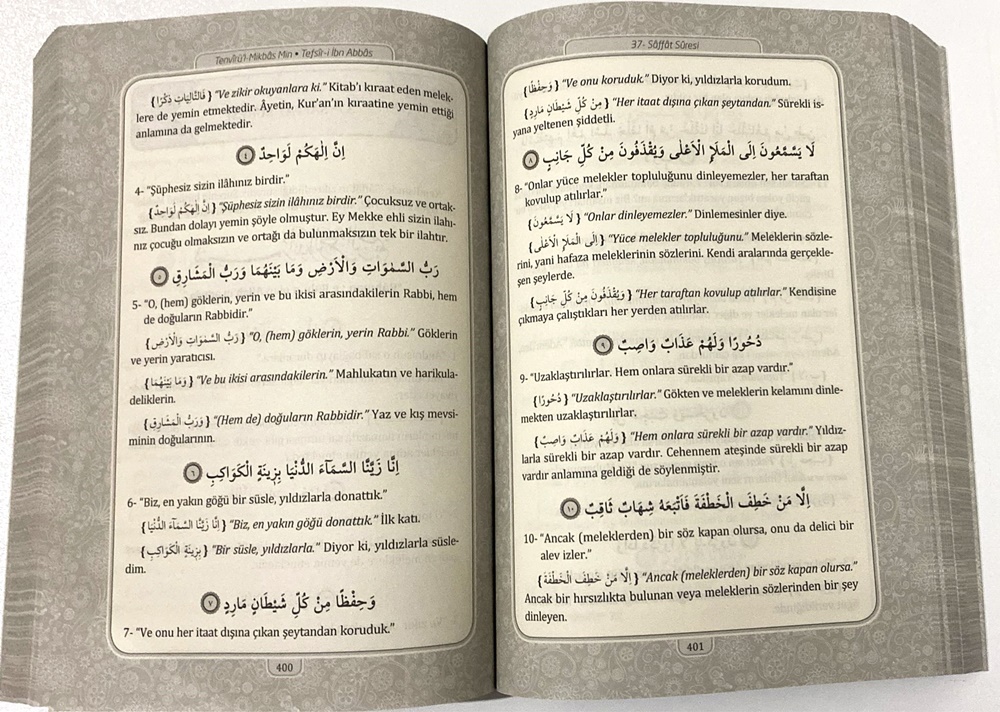 Tenvîrü'l-Mikbâs Min • Tefsîr-i İbn Abbâs
{فَالتَّالِيَاتِ ذِكْرًا} “Ve zikir okuyanlara ki.” Kitab’ı kıraat eden melek-
lere de yemin etmektedir. Âyetin, Kur’an’ın kıraatine yemin ettiği
anlamına da gelmektedir.
اِنَّ اِلٰهَكُمْ لَوَاحِدٌ ﴿٤﴾
4- “Şüphesiz sizin ilâhınız birdir.”
{اِنَّ اِلٰهَكُمْ لَوَاحِدٌ} “Şüphesiz sizin ilahınız birdir.” Çocuksuz ve ortak-
sız. Bundan dolayı yemin şöyle olmuştur. Ey Mekke ehli sizin ilahı-
nız çocuğu olmaksızın ve ortağı da bulunmaksızın tek bir ilahtır.
رَبُّ السَّمٰوَاتِ وَالْاَرْضِ وَمَا بَيْنَهُمَا وَرَبُّ الْمَشَارِقِ ﴿٥﴾
5- “O, (hem) göklerin, yerin ve bu ikisi arasındakilerin Rabbi, hem
de doğuların Rabbidir.”
{رَبُّ السَّمٰوَاتِ وَالْاَرْضِ} “O, (hem) göklerin, yerin Rabbi.” Göklerin
ve yerin yaratıcısı.
{وَمَا بَيْنَهُمَا} “Ve bu ikisi arasındakilerin.” Mahlukatın ve harikula-
deliklerin.
{وَرَبُّ الْمَشَارِقِ} “(Hem de) doğuların Rabbidir.” Yaz ve kış mevsi-
minin doğularının.
اِنَّا زَيَّنَّا السَّمَآءَ الدُّنْيَا بِزِينَةِ الْكَوَاكِبِ ﴿٦﴾
6- “Biz, en yakın göğü bir süsle, yıldızlarla donattık.”
{اِنَّا زَيَّنَّا السَّمَآءَ الدُّنْيَا} “Biz, en yakın göğü donattık.” İlk katı.
{بِزِينَةِ الْكَوَاكِبِ} “Bir süsle, yıldızlarla.” Diyor ki, yıldızlarla süsle-
dim.
وَحِفْظًا مِنْ كُلِّ شَيْطَانٍ مَارِدٍ ﴿٧﴾
7- “Ve onu her itaat dışına çıkan şeytandan koruduk.”
400
37- Sâffât Sûresi
{وَحِفْظًا} “Ve onu koruduk.” Diyor ki, yıldızlarla korudum.
{مِنْ كُلِّ شَيْطَانٍ مَارِدٍ} “Her itaat dışına çıkan şeytandan.” Sürekli is-
yana yeltenen şiddetli.
لَا يَسَّمَّعُونَ اِلَى الْمَلَاِ الْاَعْلٰى وَيُقْذَفُونَ مِنْ كُلِّ جَانِبٍ ﴿٨﴾
8- “Onlar yüce melekler topluluğunu dinleyemezler, her taraftan
kovulup atılırlar.”
{لَا يَسَّمَّعُونَ} “Onlar dinleyemezler.” Dinlemesinler diye.
{اِلَى الْمَلَاِ الْاَعْلٰى} “Yüce melekler topluluğunu.” Meleklerin sözle-
rini, yani hafaza meleklerinin sözlerini. Kendi aralarında gerçekle-
şen şeylerde.
{وَيُقْذَفُونَ مِنْ كُلِّ جَانِبٍ} “Her taraftan kovulup atılırlar.” Kendisine
çıkmaya çalıştıkları her yerden atılırlar.
دُحُورًا وَلَهُمْ عَذَابٌ وَاصِبٌ ﴿٩﴾
9- “Uzaklaştırılırlar. Hem onlara sürekli bir azap vardır.”
{دُحُورًا} “Uzaklaştırılırlar.” Gökten ve meleklerin kelamını dinle-
mekten uzaklaştırılırlar.
{وَلَهُمْ عَذَابٌ وَاصِبٌ} “Hem onlara sürekli bir azap vardır.” Yıldız-
larla sürekli bir azap vardır. Cehennem ateşinde sürekli bir azap
vardır anlamına geldiği de söylenmiştir.
اِلَّا مَنْ خَطِفَ الْخَطْفَةَ فَاَتْبَعَهُ شِهَابٌ ثَاقِبٌ ﴿١٠﴾
10- “Ancak (meleklerden) bir söz kapan olursa, onu da delici bir
alev izler.”
{اِلَّا مَنْ خَطِفَ الْخَطْفَةَ} “Ancak (meleklerden) bir söz kapan olursa.”
Ancak bir hırsızlıkta bulunan veya meleklerin sözlerinden bir şey
dinleyen.
401